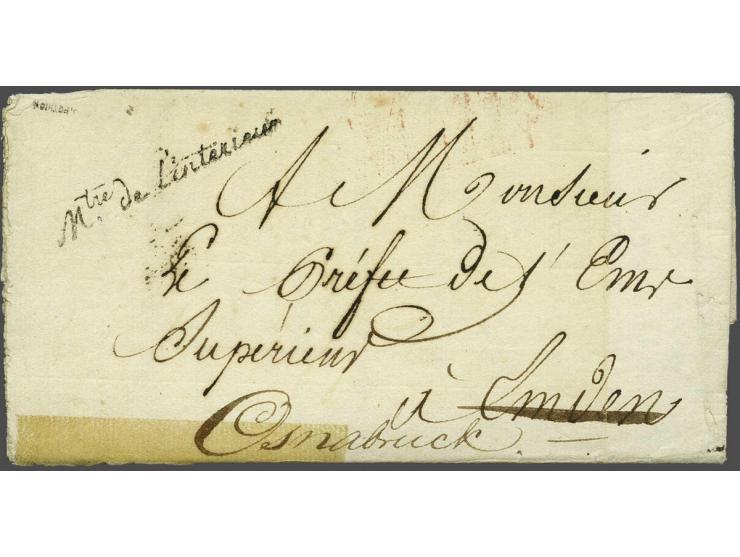 Mtre de L'intérieur
A Monsieur
Le Préfet de l' Ems
Supérieur
à Emden
Osnabruck